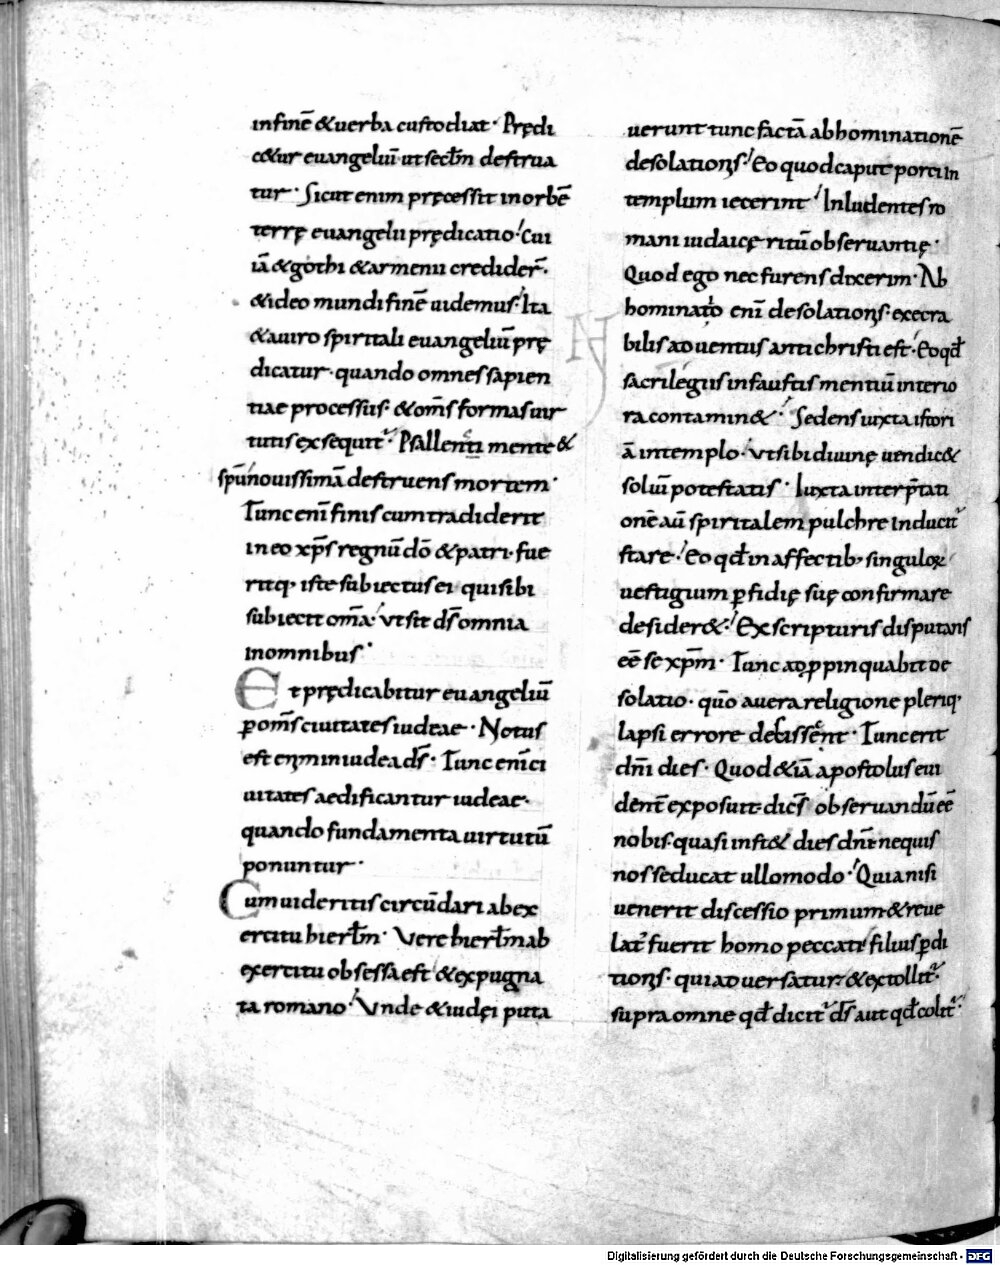 infinē &uerba custodiat· Prędi
c&ur euangeliū ut sect̄m destrua
tur· Sicut enim pręcessit inorbē
terrę euangelii prędicatio· Cui
iā & gothi & armenii crediđer·
& ideo mundi finē uidemus· Ita
& auiro spiritali euangeliū prę
dicatur· quando omnes sapien
tiae processus· & om̄s formas uir
tutis exsequit᷑· Psallenti mente &
sp̄u nouissimā destruens mortem·
Tunc enī finis cum tradiderit
ineo xp̄s regnū dō & patri· fue
ritq· iste subiectus ei quisibi
subiecit om̄a· ut sit ds̄ omnia
inomnibus·
Et prędicabitur euangeliū
ꝑ om̄s ciuitates iudeae· Notus
est enim iniudea ds̄· Tunc enī ci
uitates aedificantur iudeae·
quando fundamenta uirtutū
ponuntur·
Cum uideritis circūdari abex
ercitu hierłm· Vere hierłm ab
exercitu obsessa est & expugna
ta romano· Vnde & iudęi puta
uerunt tunc factā abhominationē
desolationis· Eo quod caput porci in
templum iecerint· Inludentes ro
mani iudaicę ritū obseruantię·
Quod ego nec furens dixerim· Ab
hominatō enī desolationis· execra
bilis aduentus antichristi est· Eo qđ
sacrilegiis infaustis mentiū interio
ra contamin&· Sedens iuxta istori
ā intemplo· ut sibi diuinę uendic&
soliū potestatis· Iuxta interp̄tati
onē aū spiritalem pulchre inducit᷑
stare· Eo qđ in affectib; singuloꝝ
uestigium ꝑfidię suę confirmare
desider&· Ex scripturis disputans
eē se xp̄m· Tunc adpropinquabit de
solatio· qūo auera religione pleriq·
lapsi errore desciss&nt· Tunc erit
dn̄i dies· Quod & iā apostolus eui
dent̄ exposuit· dicēs obseruandū eē
nobis· quasi inst& dies dn̄i· nequis
nos seducat ullomodo· Quia nisi
uenerit discessio primum & reue
lat᷑ fuerit homo peccati filius ꝑdi
tionis· qui aduersatur & extollit᷑·
supra omne qđ dicit᷑ ds̄ aut qđ colit᷑·
N
Digitalisierung gefördert durch die Deutsche Forschungsgemeinschaft - DFG